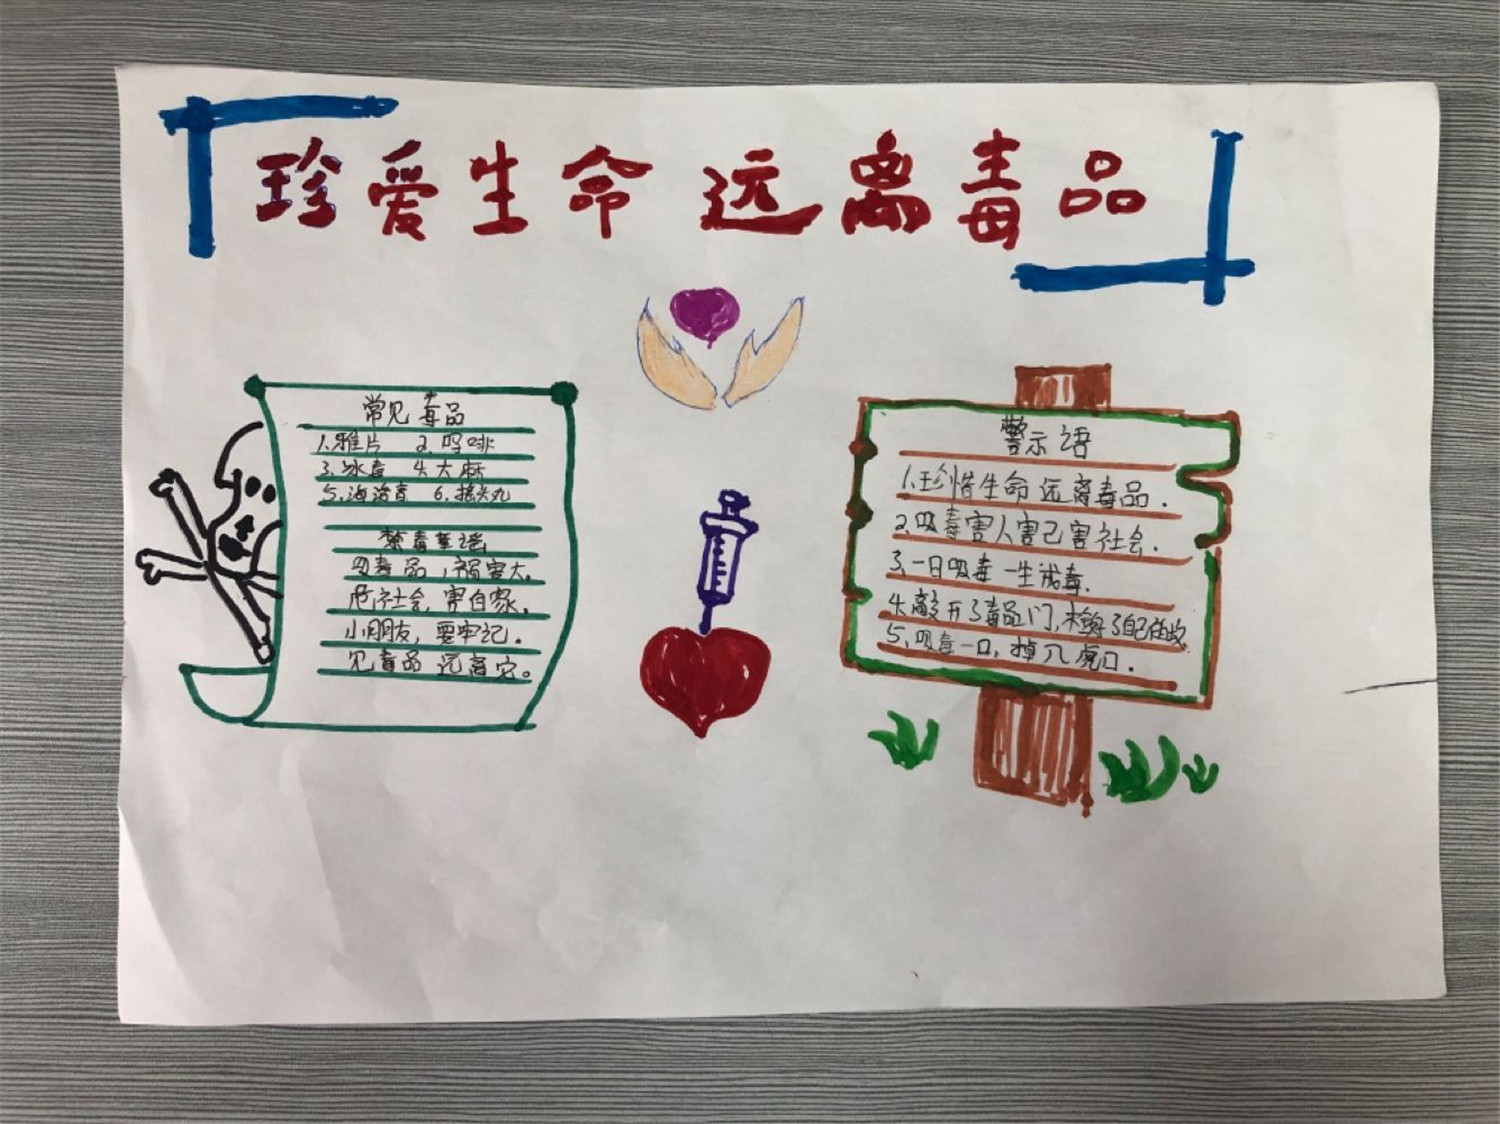 珍爱生命 远离毒品
常见毒品
1.雅片 2.吗啡
3.冰毒 4.大麻
5.海洛音 6.摇头丸
禁毒童谣
吸毒品,祸害大。
危社会 害自家。
小朋友,要牢记。
见毒品 远离它。
警示语
1.珍惜生命 远离毒品.
2.吸毒害人害己害社会.
3.一日吸毒 一生戒毒.
4.敲开了毒品门,
5.吸毒一口,掉入虎口.